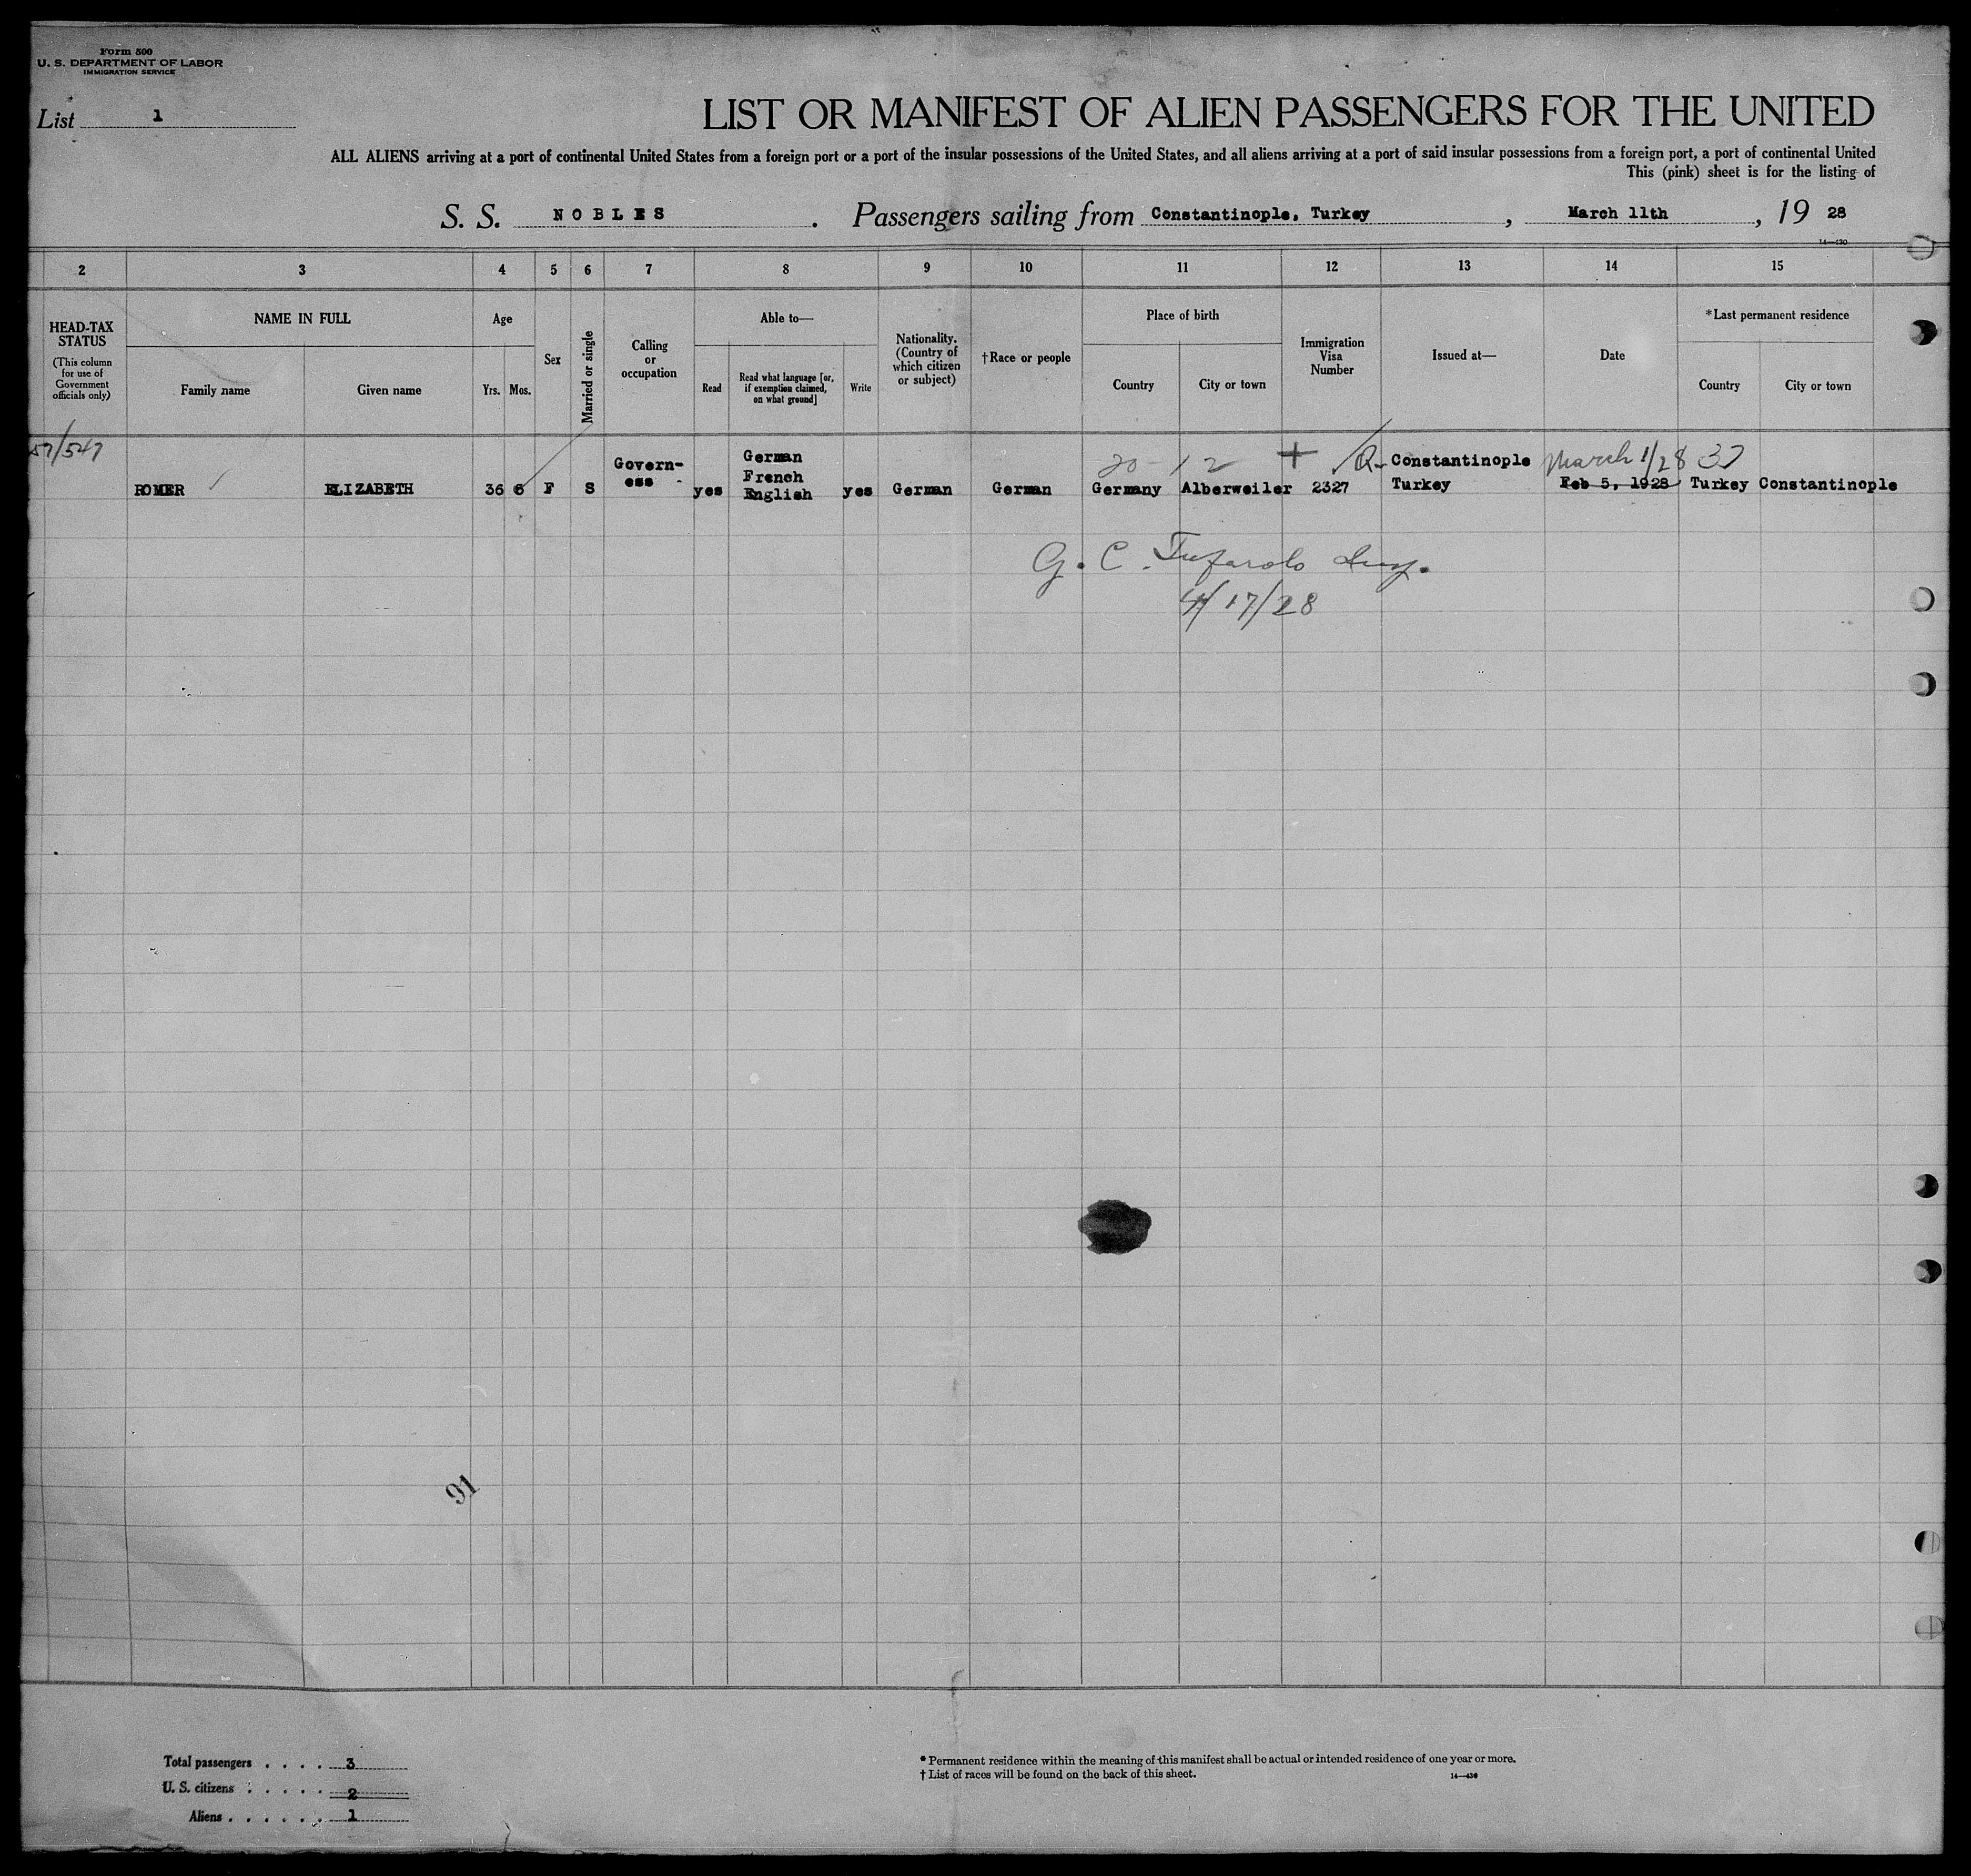 Form 500
U. S. DEPARTMENT OF LABOR
IMMIGRATION SERVICE
List 1
LIST OR MANIFEST OF ALIEN PASSENGERS FOR THE UNITED
ALL ALIENS arriving at a port of continental United States from a foreign port or a port of the insular possessions of the United States, and all aliens arriving at a port of said insular possessions from a foreign port, a port of continental United
This (pink) sheet is for the listing of
S. S. NOBLES. Passengers sailing from Constantinople, Turkey, March 11th, 19 28
2 3 4 5 6 7 8 9 10 11 12 13 14 15
HEAD-TAX STATUS
(This column for use of Government officials only)
NAME IN FULL
Family name
Given name
Age
Yrs. Mos.
Sex
Married or single
Calling or occupation
Able to—
Read
Read what language [or, if exemption claimed, on what ground]
Write
Nationality. (Country of which citizen or subject)
†Race or people
Place of birth
Country
City or town
Immigration Visa Number
Issued at—
Date
*Last permanent residence
Country
City or town
57/547
20-12 + Q- Constantinople March 1/28 37
Govern-
ess
German
French
English
ROMER ELIZABETH 36 6 F S yes yes German German Germany Alberweiler 2327 Turkey Feb 5, 1928 Turkey Constantinople
G. C. Insp.
4/17/28
91
Total passengers . . . . 3
U. S. citizens . . . . . 2
Aliens . . . . . . 1
* Permanent residence within the meaning of this manifest shall be actual or intended residence of one year or more.
† List of races will be found on the back of this sheet.
14—430